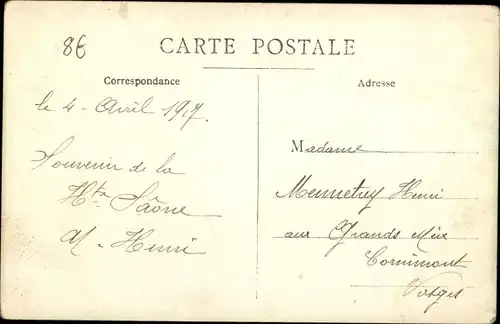 8€
CARTE POSTALE
Correspondance
Adresse
le 4 Avril 1917.
Souvenir de la
Hte Saône
M. Henri
Madame
Mennetrey Henri
aux Grands Meix
Cornimont
Vosges